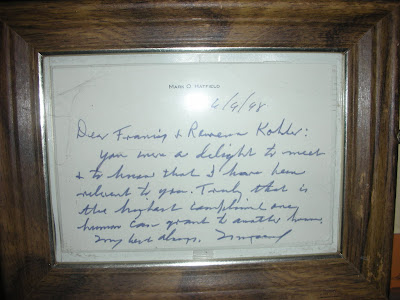 MARK O. HATFIELD
6/9/98
Dear Francis & Rowena Kohler:
you were a delight to meet
& to know that I have been
relevent to you. Truly that is
the highest compliment any
human can grant to another human.
My best always.